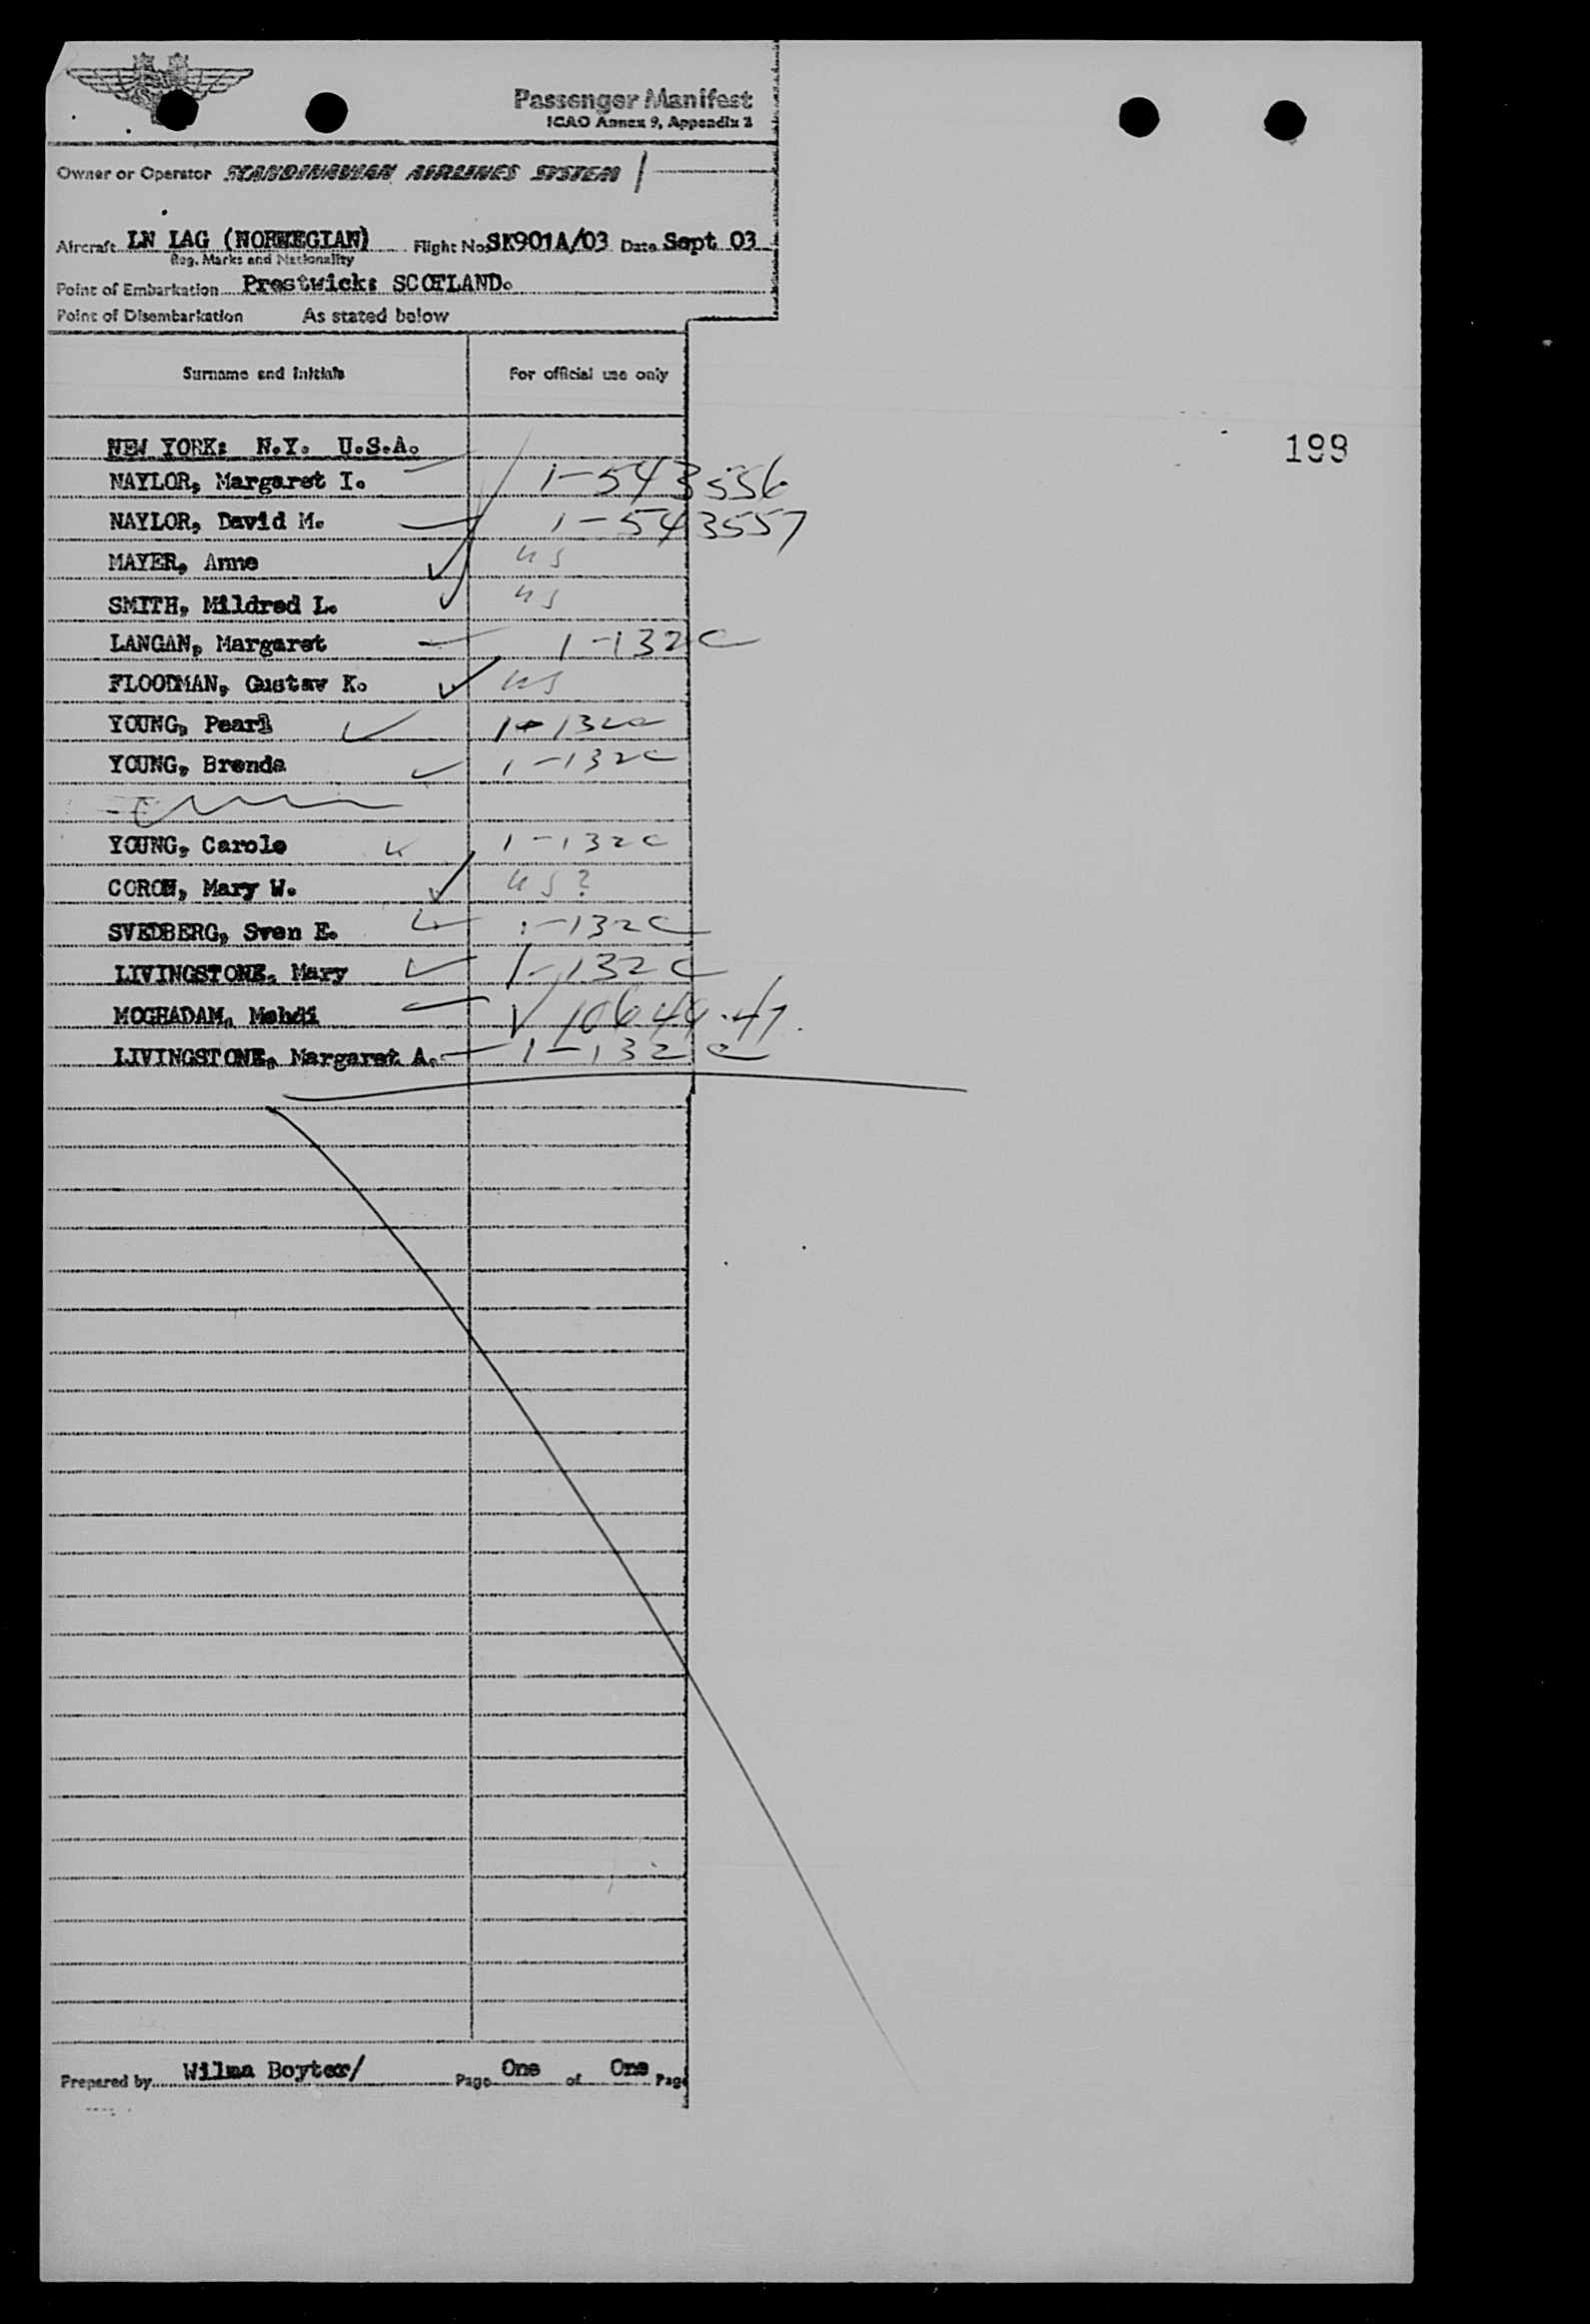 Passenger Manifest
ICAO Annex 9, Appendix 2
Owner or Operator SCANDINAVIAN AIRLINES SYSTEM
Aircraft LN LAG (NORWEGIAN) Flight No. SK901A/03 Date Sept 03
Reg. Marks and Nationality
Point of Embarkation Prestwick: SCOTLAND.
Point of Disembarkation As stated below
Surname and Initials For official use only
NEW YORK: N.Y. U.S.A.
199
NAYLOR, Margaret I. 1-543556
NAYLOR, David M. 1-543557
MAYER, Anne us
SMITH, Mildred L. us
LANGAN, Margaret 1-132C
FLOODMAN, Gustav K. us
YOUNG, Pearl 1-132c
YOUNG, Brenda 1-132C
YOUNG, Carole 1-132C
Mary W. us?
SVEDBERG, Sven E. 1-132C
LIVINGSTONE, Mary 1-132C
MOGHADAM, Mehdi V 10644.47
LIVINGSTONE, Margaret A. 1-132C
Prepared by Wilma Page One of One Page